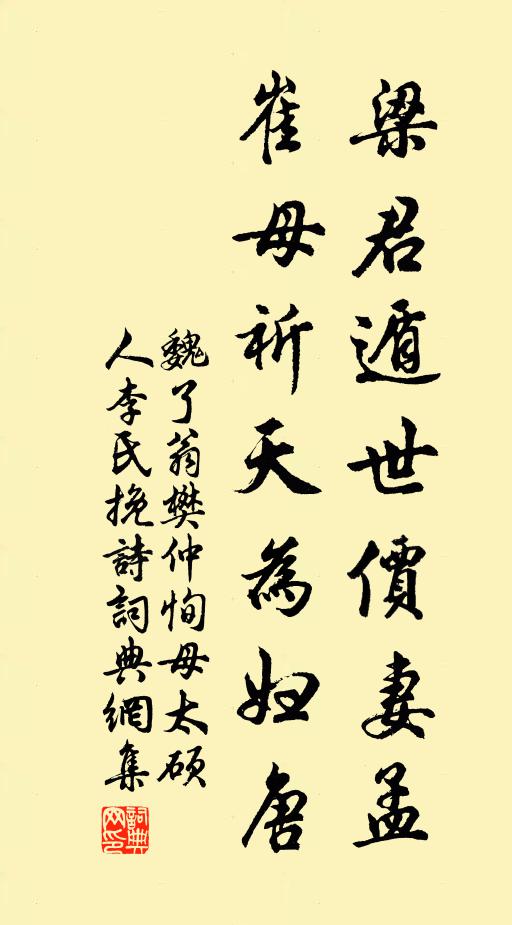 梁君遁世價妻孟
崔母祈天為妇唐
魏了翁樊仲恂母太硕
人李氏挽詩詞典網集
詞典